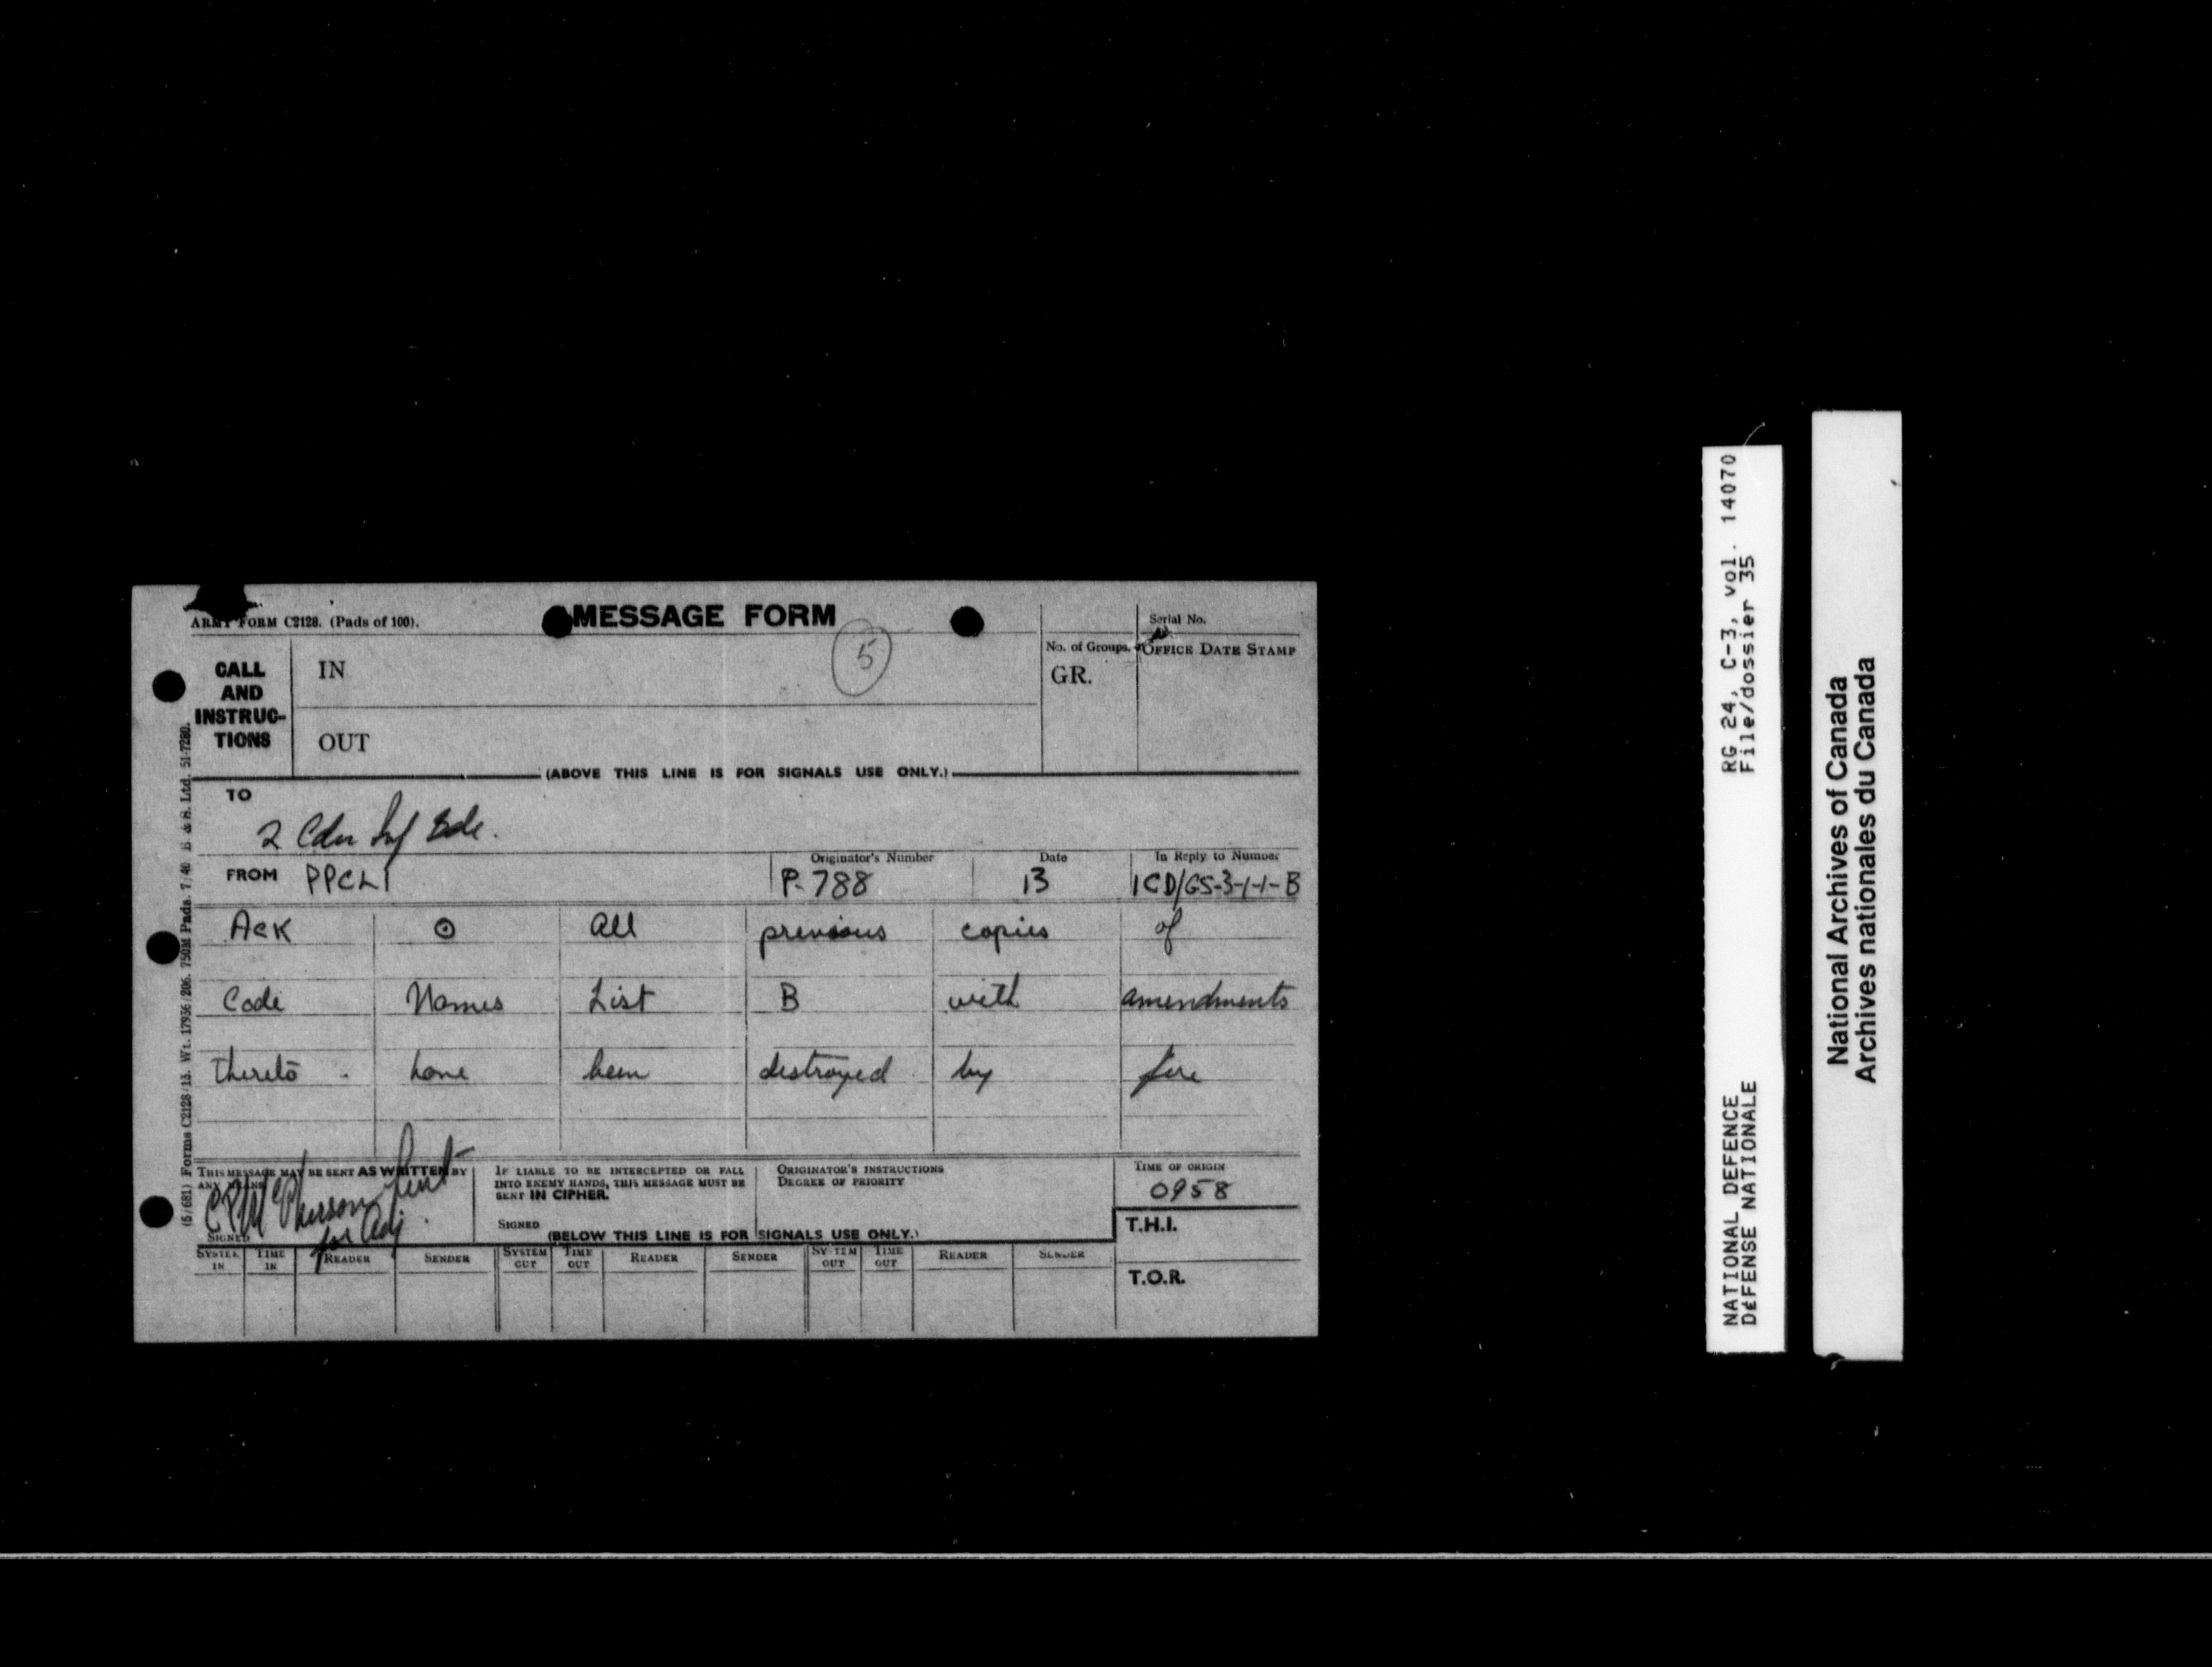 ARMY FORM C2128. (Pads of 100).
MESSAGE FORM
5
Serial No.
No. of Groups.
GR.
OFFICE DATE STAMP
CALL
AND
INSTRUC-
TIONS
IN
OUT
(ABOVE THIS LINE IS FOR SIGNALS USE ONLY.)
TO
2 Cdn Inf Bde.
FROM PPCLI
Originator's Number
P-788
Date
13
In Reply to Number
1CD/GS-3-1-1-B
Ack ⊙ All previous copies of
Code Names List B with amendments
thereto . have been destroyed by fire
THIS MESSAGE MAY BE SENT AS WRITTEN BY
ANY MEANS
C P McPherson Lieut
for Adj.
SIGNED
IF LIABLE TO BE INTERCEPTED OR FALL
INTO ENEMY HANDS, THIS MESSAGE MUST BE
SENT IN CIPHER.
SIGNED
ORIGINATOR'S INSTRUCTIONS
DEGREE OF PRIORITY
TIME OF ORIGIN
0958
T.H.I.
T.O.R.
(BELOW THIS LINE IS FOR SIGNALS USE ONLY.)
SYSTEM IN TIME IN READER SENDER SYSTEM OUT TIME OUT READER SENDER SYSTEM OUT TIME OUT READER SENDER
(5/681) Forms C2128/13. Wt. 17956/206. 750M Pads. 7/40 E & S. Ltd. 51-7280.
NATIONAL DEFENCE RG 24, C-3, vol. 14070
DéFENSE NATIONALE File/dossier 35
National Archives of Canada
Archives nationales du Canada